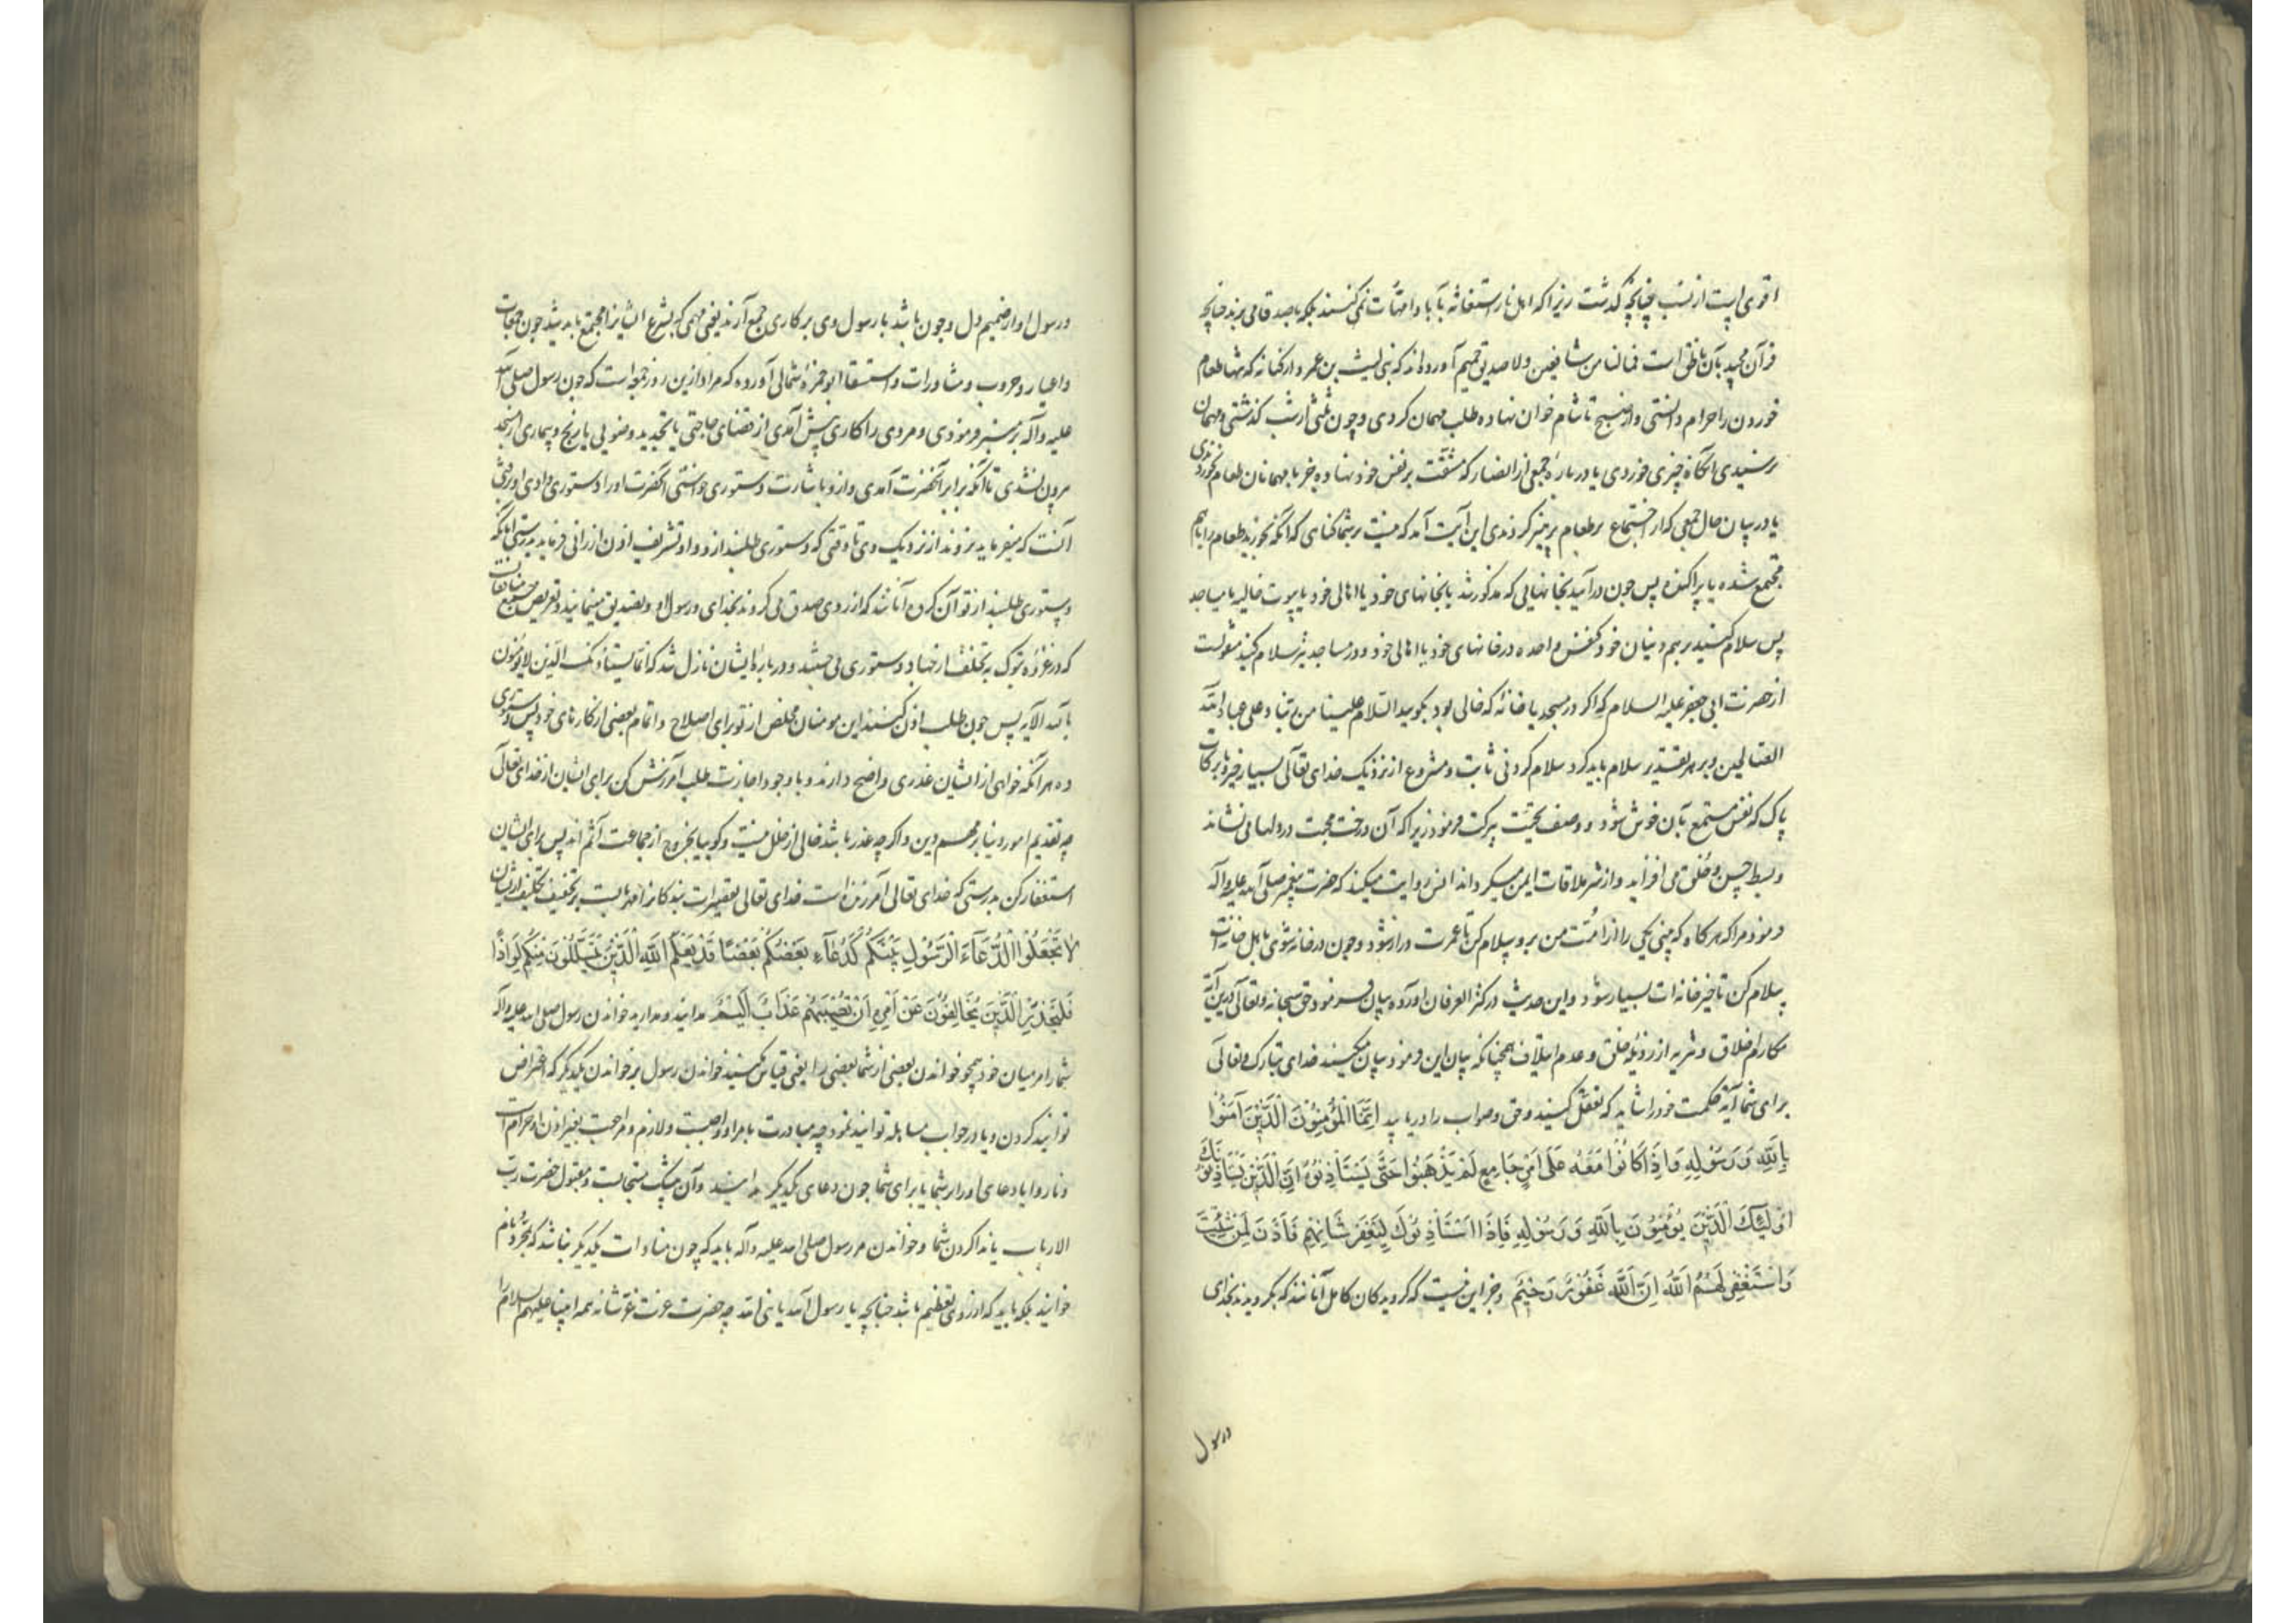 اقوی است از نسب چنانچه گذشت زیرا که اهل نار استغاثه بآبا و امهات نمی‌کنند بلکه باصدقا می‌برند چنانچه
قرآن مجید بآن ناطق است فمالنا من شافعین ولا صدیق حمیم آورده‌اند که بنی لیث بن عمرو از کنانه که تنها طعام
خوردن را حرام دانستی و از صبح تا شام خوان نهاده طلب مهمان کردی و چون ثلثی از شب گذشتی و مهمان
نرسیدی آنگاه چیزی خوردی یا در باره جمعی از انصار که مشقت بر نفس خود نهاده جز با مهمانان طعام نخوردندی
یا در بیان حال جمعی که از اجتماع بر طعام پرهیز کردندی این آیت آمد که نیست بر شما گناهی که آنکه بخورید طعام را با هم
مجتمع شده یا پراکنده پس چون درآیید بخانهایی که مذکور شد یا بخانهای خود یا اهالی خود یا بیوت خالیه یا مساجد
پس سلام کنید بر هم دینان خود کنفس واحده در خانهای خود یا اهالی خود و در مساجد نیز سلام کنید منقولست
از حضرت ابی جعفر علیه السلام که اگر در مسجد یا خانه که خالی بود بگویید السلام علینا من ربنا و علی عباد الله
الصالحین و بر هر تقدیر سلام باید کرد سلام کردنی ثابت و مشروع از نزدیک خدای تعالی بسیار خیر و با برکات
پاک که نفس مستمع بآن خوش شود و وصف تحیت ببرکت فرمود زیرا که آن درخت محبت در دلها می نشاند
و بسط حسن و خلق می افزاید و از شر ملاقات ایمن میگرداند انس روایت میکند که حضرت پیغمبر صلی الله علیه و آله
فرمود مرا که هر گاه که بینی یکی را از امت من برو سلام کن تا عمرت دراز شود و چون در خانه شوی باهل خانه‌ات
سلام کن تا خیر خانه‌ات بسیار شود و این حدیث در کنز العرفان آورده بیان فرمود حق سبحانه و تعالی درین آیه
مکارم اخلاق و تنزیه از رذیله خلق و عدم ایتلاف همچنانکه بیان این فرمود بیان میکند خدای تبارک و تعالی
برای شما آیه حکمت خود را شاید که تعقل کنید و حق و صواب را دریابید اِنَّمَا الْمُؤْمِنُونَ الَّذِینَ آمَنُوا
بِاللّٰهِ وَرَسُولِهِ وَاِذَا کَانُوا مَعَهُ عَلَی اَمْرٍ جَامِعٍ لَمْ یَذْهَبُوا حَتَّی یَسْتَاْذِنُوهُ اِنَّ الَّذِینَ یَسْتَاْذِنُونَکَ
اُولٰئِکَ الَّذِینَ یُؤْمِنُونَ بِاللّٰهِ وَرَسُولِهِ فَاِذَا اسْتَاْذَنُوکَ لِبَعْضِ شَاْنِهِمْ فَاْذَنْ لِمَنْ شِئْتَ
وَاسْتَغْفِرْ لَهُمُ اللّٰهَ اِنَّ اللّٰهَ غَفُورٌ رَحِیمٌ و جز این نیست که گرویدگان کامل آنانند که بگرویدند بخدای
ورسول
ورسول او از صمیم دل و چون باشد با رسول وی بر کاری جمع آرنده یعنی مهمی که بشرع ایشانرا مجتمع باید شد چون جمعات
و اعیاد و حروب و مشاورات و استسقا ابوحمزه ثمالی آورده که مراد ازین روز جمعه است که چون رسول صلی الله
علیه و آله بر منبر فرمودی و مردی را کاری پیش آمدی از قضای حاجتی یا تجدید وضویی یا رنج و بیماری از مسجد
بیرون نشدی تا آنکه برابر آنحضرت آمدی و ازو باشارت دستوری خواستی آنحضرت او را دستوری دادی او رفتی
آنست که میفرماید نروند از نزدیک وی تا وقتی که دستوری طلبند ازو و او تشریف اذن ارزانی فرماید بدرستی آنانکه
دستوری طلبند از تو آن گروه آنانند که از روی صدق می گروند بخدای و رسول او و تصدیق مینمایند و تعریض جمیع منافقانست
که در غزوه تبوک به تخلف از جهاد دستوری می جستند و در باره ایشان نازل شد که انما یستاذنک الذین لا یؤمنون
بالله الآیه پس چون طلب اذن کنند این مومنان مخلص از تو برای اصلاح و اتمام بعضی از کارهای خود پس دستوری
ده هر آنکه خواهی از ایشان عذری واضح دارند و با وجود اجازت طلب آمرزش کن برای ایشان از خدای تعالی
چه تقدیم امور دنیا بر مهم دین و اگر چه عذر باشد خالی از خلل نیست و گوییا بخروج از جماعت آثم اند پس برای ایشان
استغفار کن بدرستی که خدای تعالی آمرزنده است خدای تعالی تقصیرات بندگانرا مهربانست بر تخفیف تکلیف ازیشان
لَا تَجْعَلُوا الدُّعَآءَ الرَّسُولِ بَیْنَکُمْ کَدُعَآءِ بَعْضُکُمْ بَعْضًا قَدْ یَعْلَمُ اللّٰهُ الَّذِینَ یَتَسَلَّلُونَ مِنْکُمْ لِوَاذًا
فَلْیَحْذَرِ الَّذِینَ یُخَالِفُونَ عَنْ اَمْرِهِ اَنْ تُصِیبَهُمْ عَذَابٌ اَلِیمٌ مدانید و مدارید خواندن رسول صلی الله علیه و آله
شما را در میان خود همچو خواندن بعضی از شما بعضی را یعنی قیاس مکنید خواندن رسول بر خواندن یکدیگر که اعراض
توانید کردن و یا در جواب مساهله توانید نمود چه مبادرت بامر او واجبست و لازم و مراجعت بغیر اذن او حرام است
و ناروا یا دعای او را بر شما یا برای شما چون دعای یکدیگر مدانید و آن بیشک مستجابست و مقبول حضرت رب
الارباب یا ندا کردن شما و خواندن مر رسول صلی الله علیه و آله باید که چون مناداات یکدیگر نباشد که بمجرد نام
خوانید بلکه باید که از روی تعظیم باشد چنانچه یا رسول الله یا نبی الله چه حضرت عزت عز شانه همه انبیا علیهم السلام را